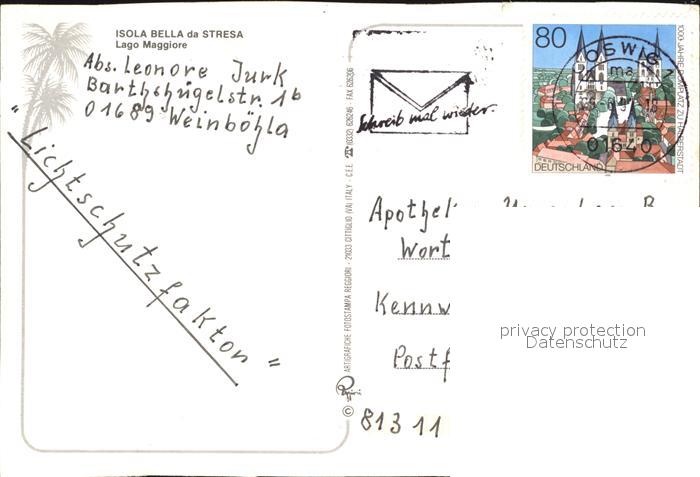 ISOLA BELLA da STRESA
Lago Maggiore
Abs. Leonore Jurk
Barthshügelstr. 1b
01689 Weinböhla
"Lichtschutzfaktor"
ARTIGRAFICHE FOTOSTAMPA REGGIORI - 21033 CITTIGLIO (VA) ITALY - C.E.E.
©
Schreib mal wieder.
80
DEUTSCHLAND
01640
Wort
Postf
81311
privacy protection
Datenschutz